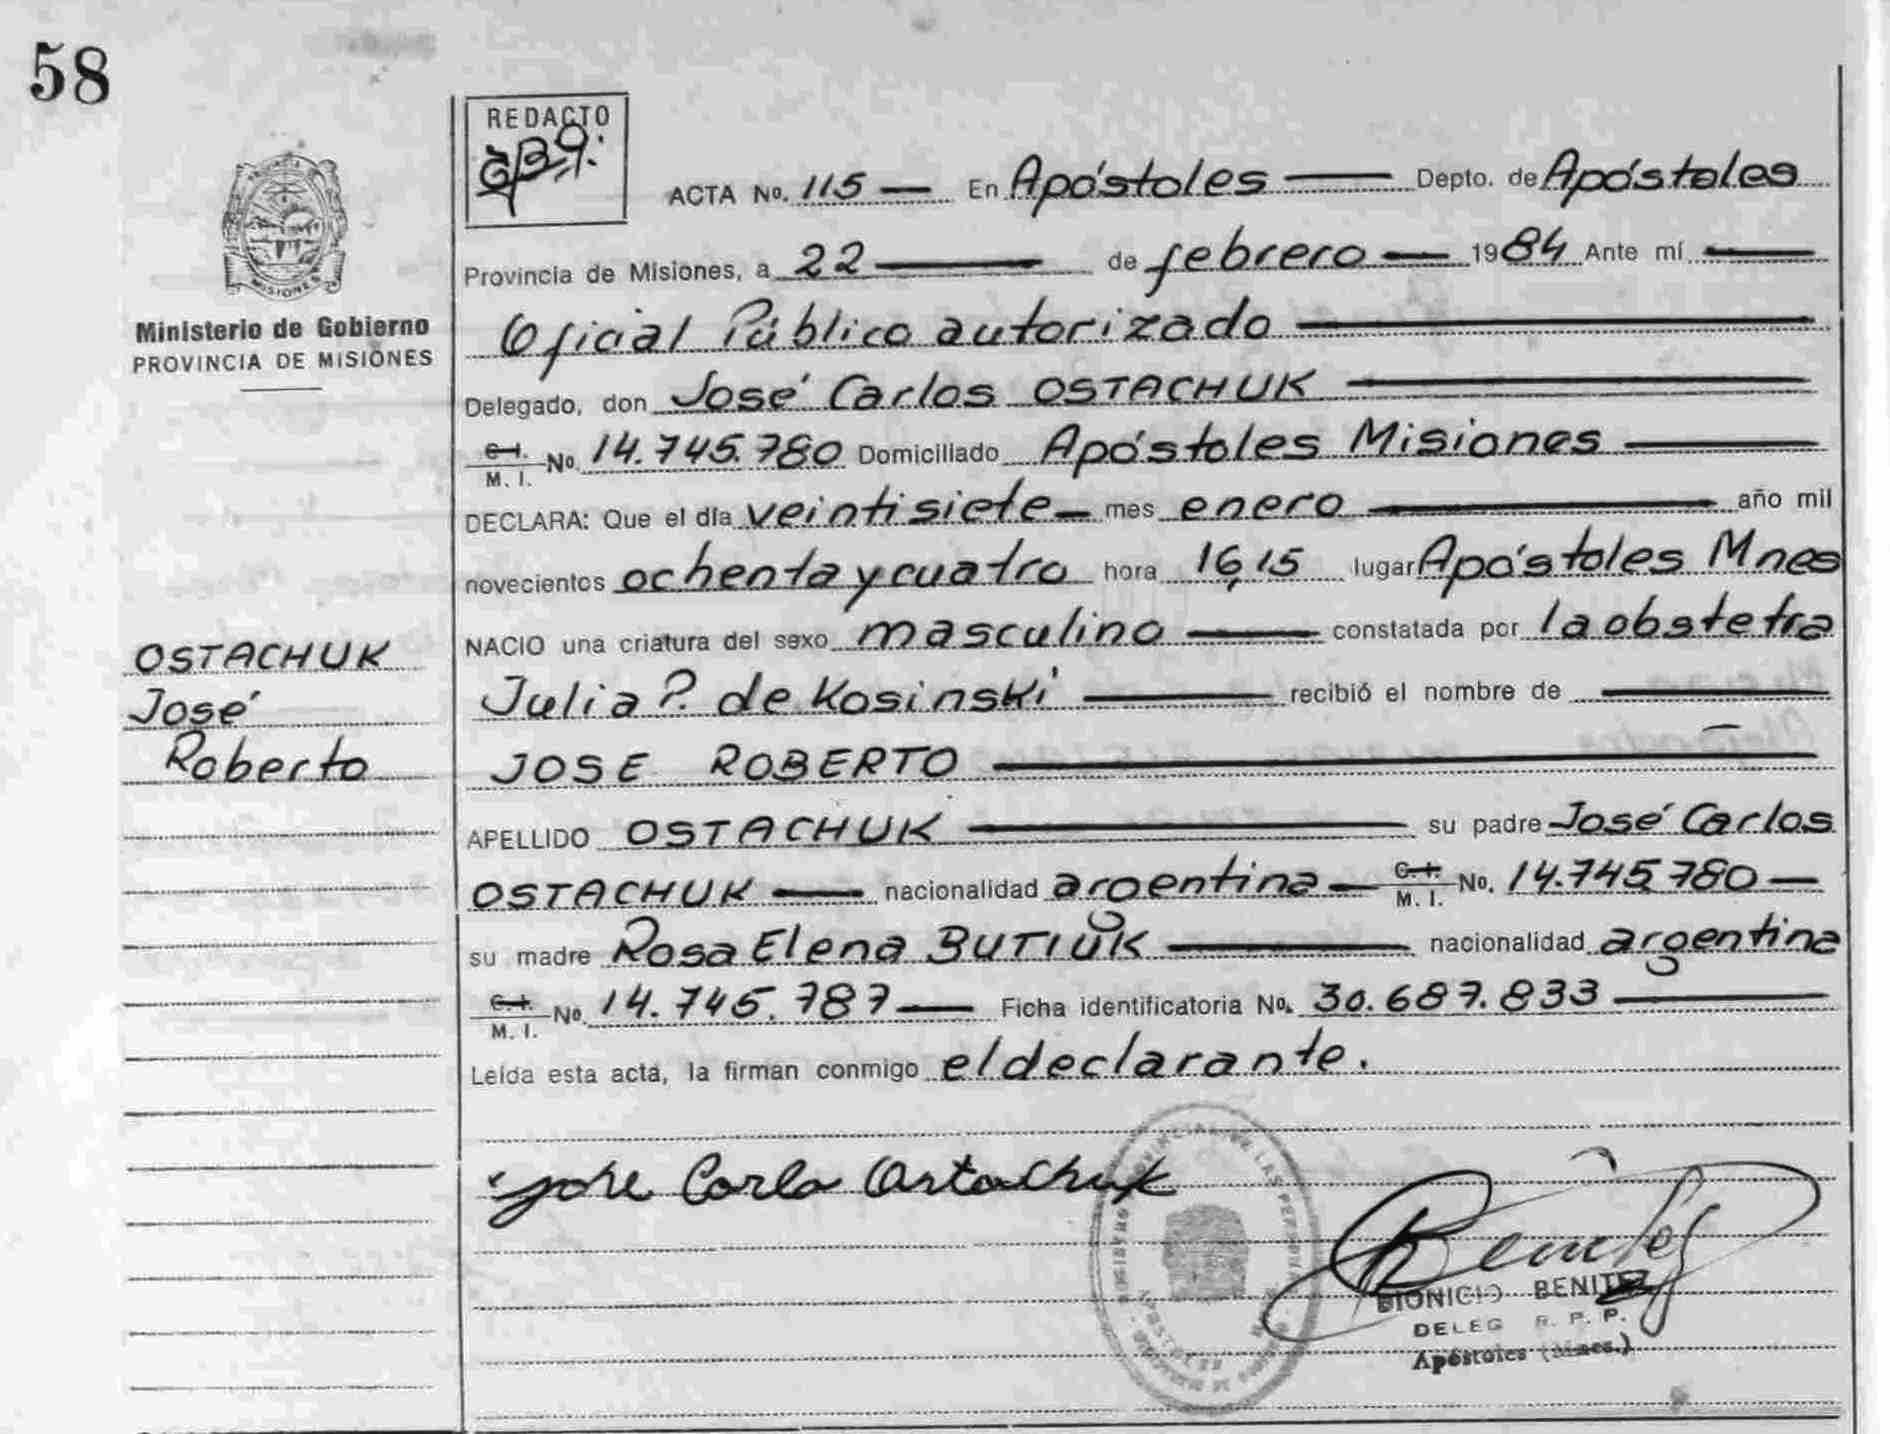 58
REDACTO
ACTA No. 115 — En Apóstoles — Depto. de Apóstoles
Provincia de Misiones, a 22 — de febrero — 1984 Ante mí —
Oficial Público autorizado —
Delegado, don José Carlos OSTACHUK —
C.I. M.I. No. 14.745.780 Domiciliado Apóstoles Misiones —
DECLARA: Que el día veintisiete — mes enero — año mil
novecientos ochenta y cuatro hora 16,15 lugar Apóstoles Mnes
NACIO una criatura del sexo masculino — constatada por la obstetra
Julia P. de Kosinski — recibió el nombre de —
JOSE ROBERTO —
APELLIDO OSTACHUK — su padre José Carlos
OSTACHUK — nacionalidad argentina — C.I. M.I. No. 14.745.780 —
su madre Rosa Elena BUTIUK — nacionalidad argentina
C.I. M.I. No. 14.745.787 — Ficha identificatoria No. 30.687.833 —
Leída esta acta, la firman conmigo el declarante.
MISIONES
Ministerio de Gobierno
PROVINCIA DE MISIONES
OSTACHUK
José
Roberto
Jose Carlo Ostachuk
Benitez
DIONICIO BENITEZ
DELEG R. P. P.
Apóstoles (Mnes.)